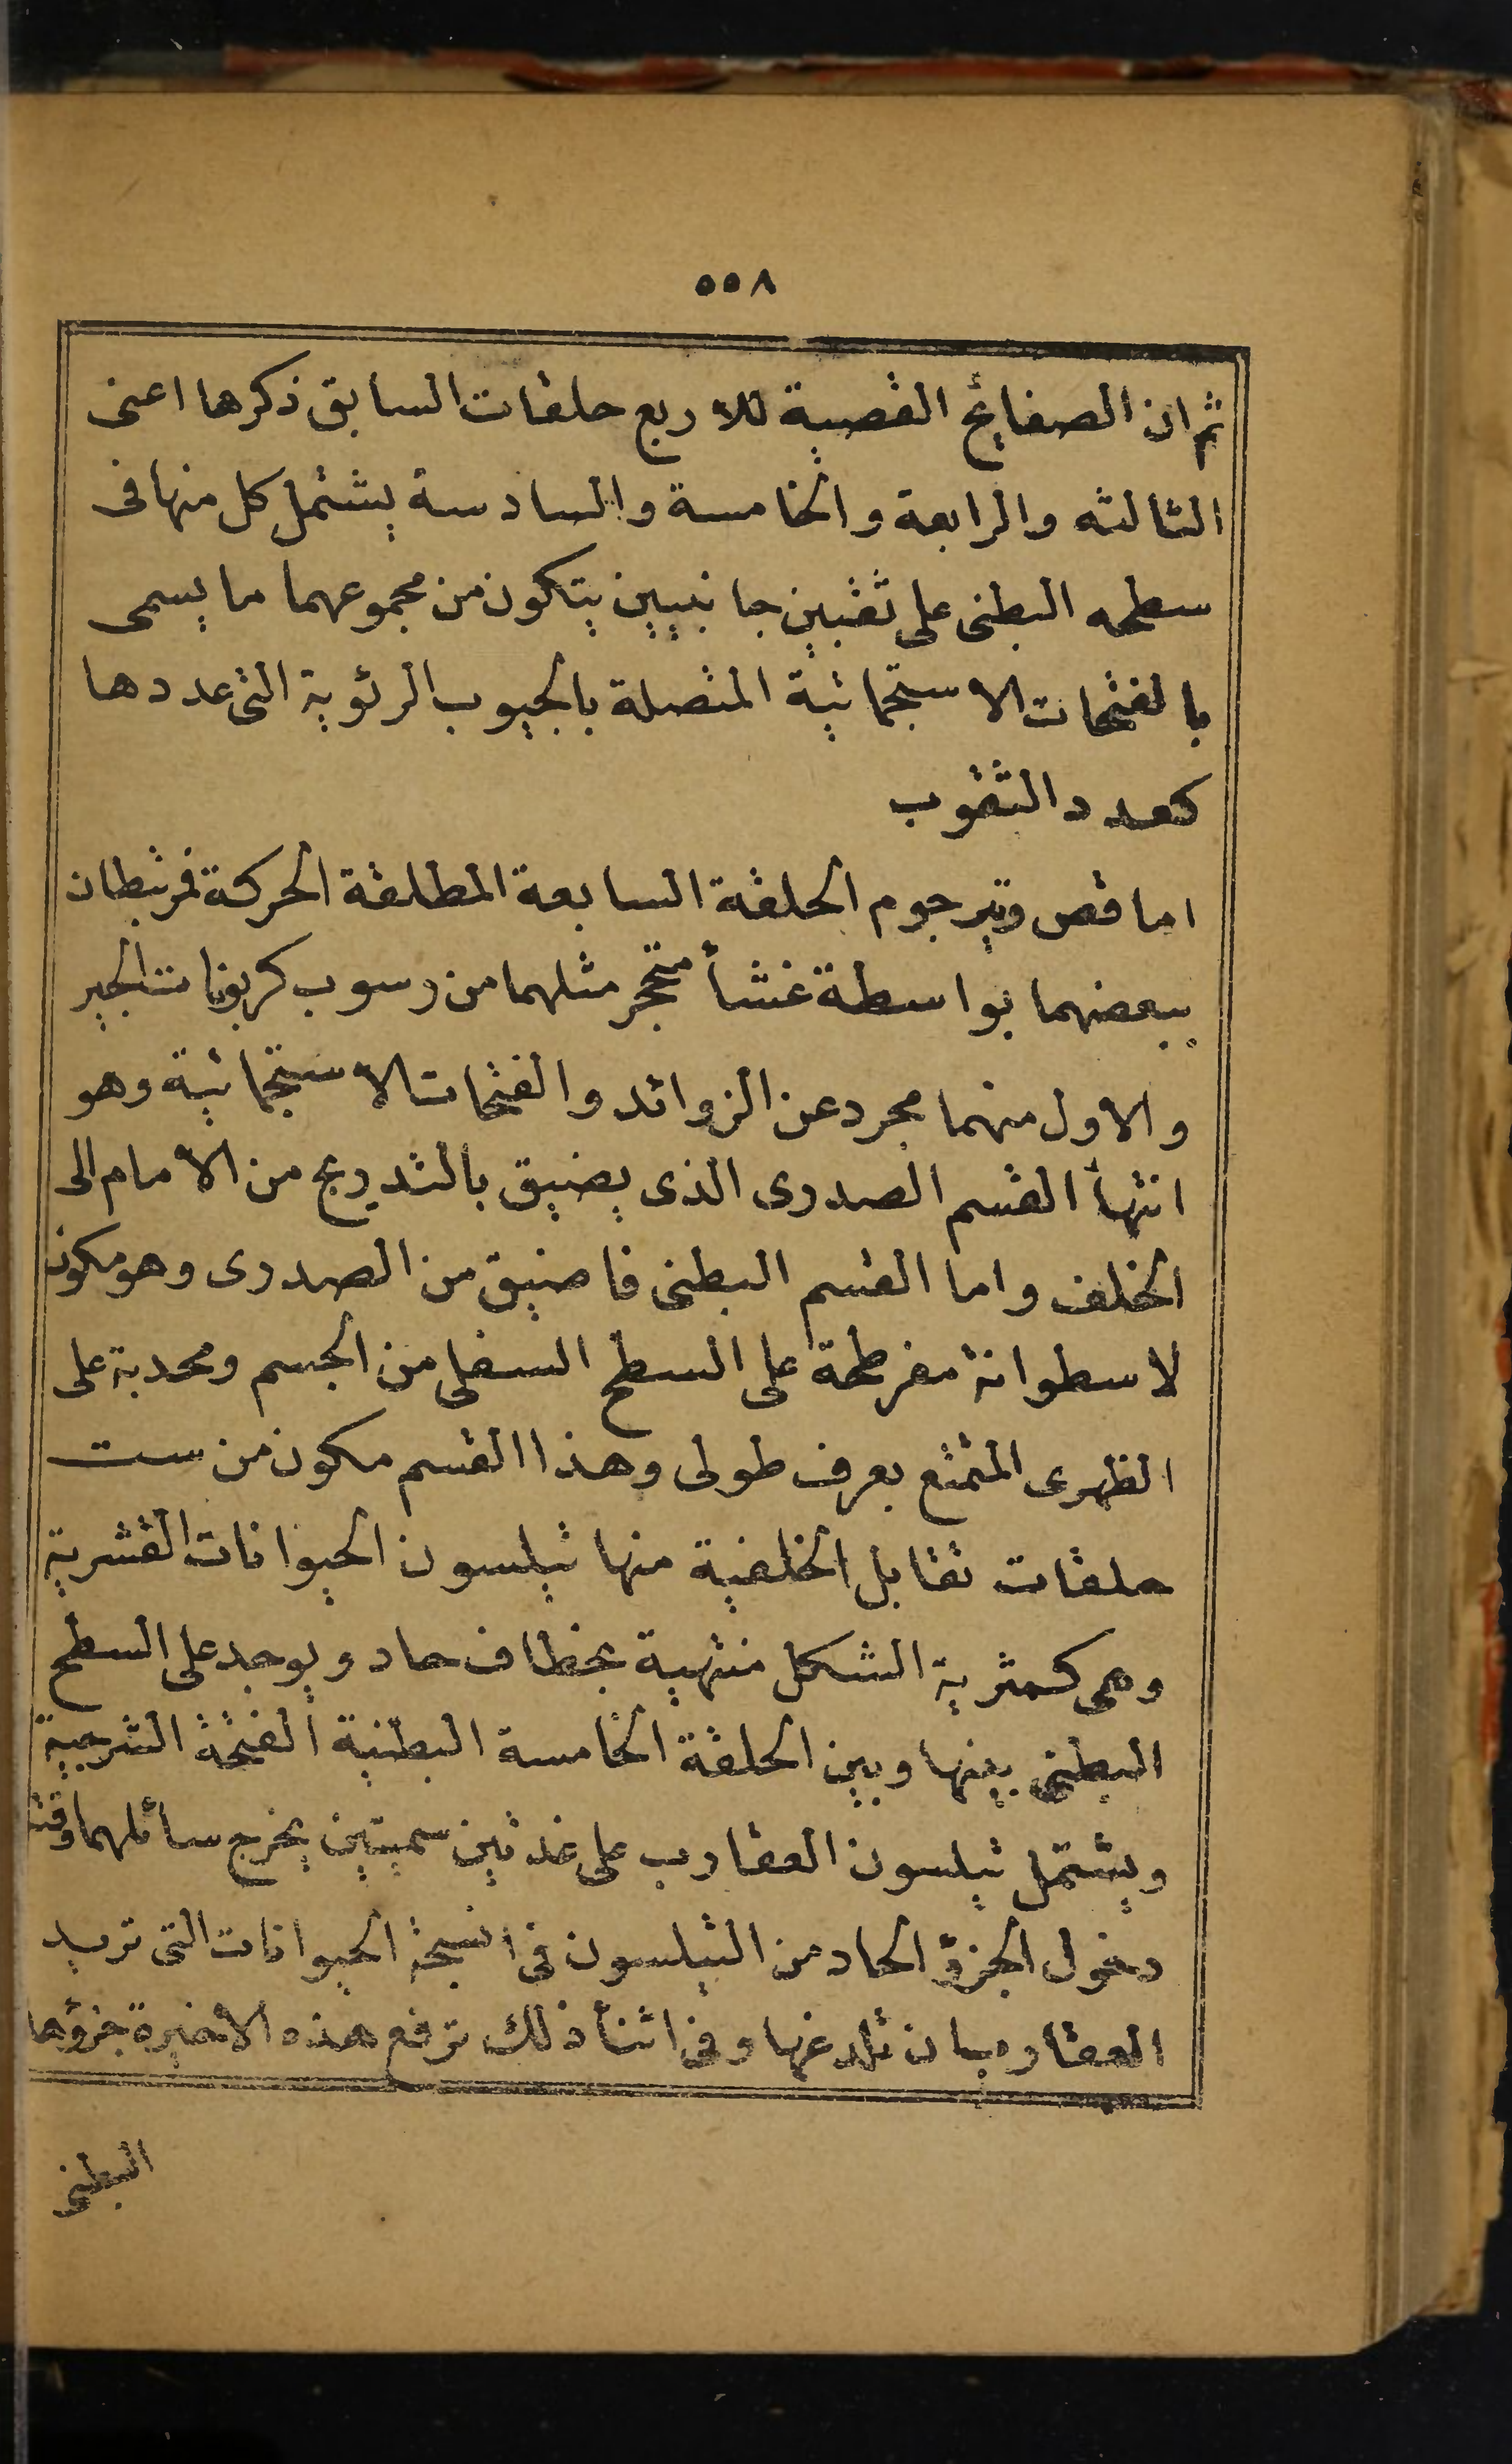 ٥٥٨
ثم ان الصفائح القصية للاربع حلقات السابق ذكرها اعنى
الثالثه والرابعة والخامسة والسادسة يشتمل كل منها فى
سطحه البطنى على ثقبين جانبيين يتكون من مجموعهما ما يسمى
بالفتحات الاستجمائية المتصلة بالجيوب الرئوية التى عددها
كعدد الثقوب
اما قص وتيرجوم الحلقة السابعة المطلقة الحركة فمرتبطان
ببعضهما بواسطة غشأ متحجر مثلهما من رسوب كربونات الجير
والاول منهما مجرد عن الزوائد والفتحات الاستجمائية وهو
انتهأ القسم الصدرى الذى يضيق بالتدريج من الامام الى
الخلف واما القسم البطنى فاضيق من الصدرى وهو مكون
لاسطوانة مفرطحة على السطح السفلى من الجسم ومحدبة على
الظهرى المتمتع بعرف طولى وهذا القسم مكون من ست
حلقات تقابل الخلفية منها تيلسون الحيوانات القشرية
وهى كمثرية الشكل منتهية بخطاف حاد ويوجد على السطح
البطنى بينها وبين الحلقة الخامسة البطنية الفتحة الشرجية
ويشتمل تيلسون العقارب على غدتين سميتين يخرج سأئلهما وقت
دخول الجزؤ الحاد من التيلسون فى انسجة الحيوانات التى تريد
العقارب ان تلدغها وفى اثنأ ذلك ترفع هذه الاخيرة جزؤها
البطنى